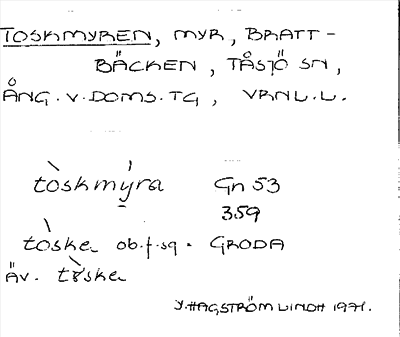 TOSKMYREN, MYR, BRATT-
BÄCKEN, TÅSJÖ SN,
ÅNG. V. DOMS. TG, VRNL.L.
tòskmýra Gn 53
359
tòske ob.f.sg. GRODA
ÄV. tʏ̀ske
Y. HAGSTRÖM LINDH 1971.